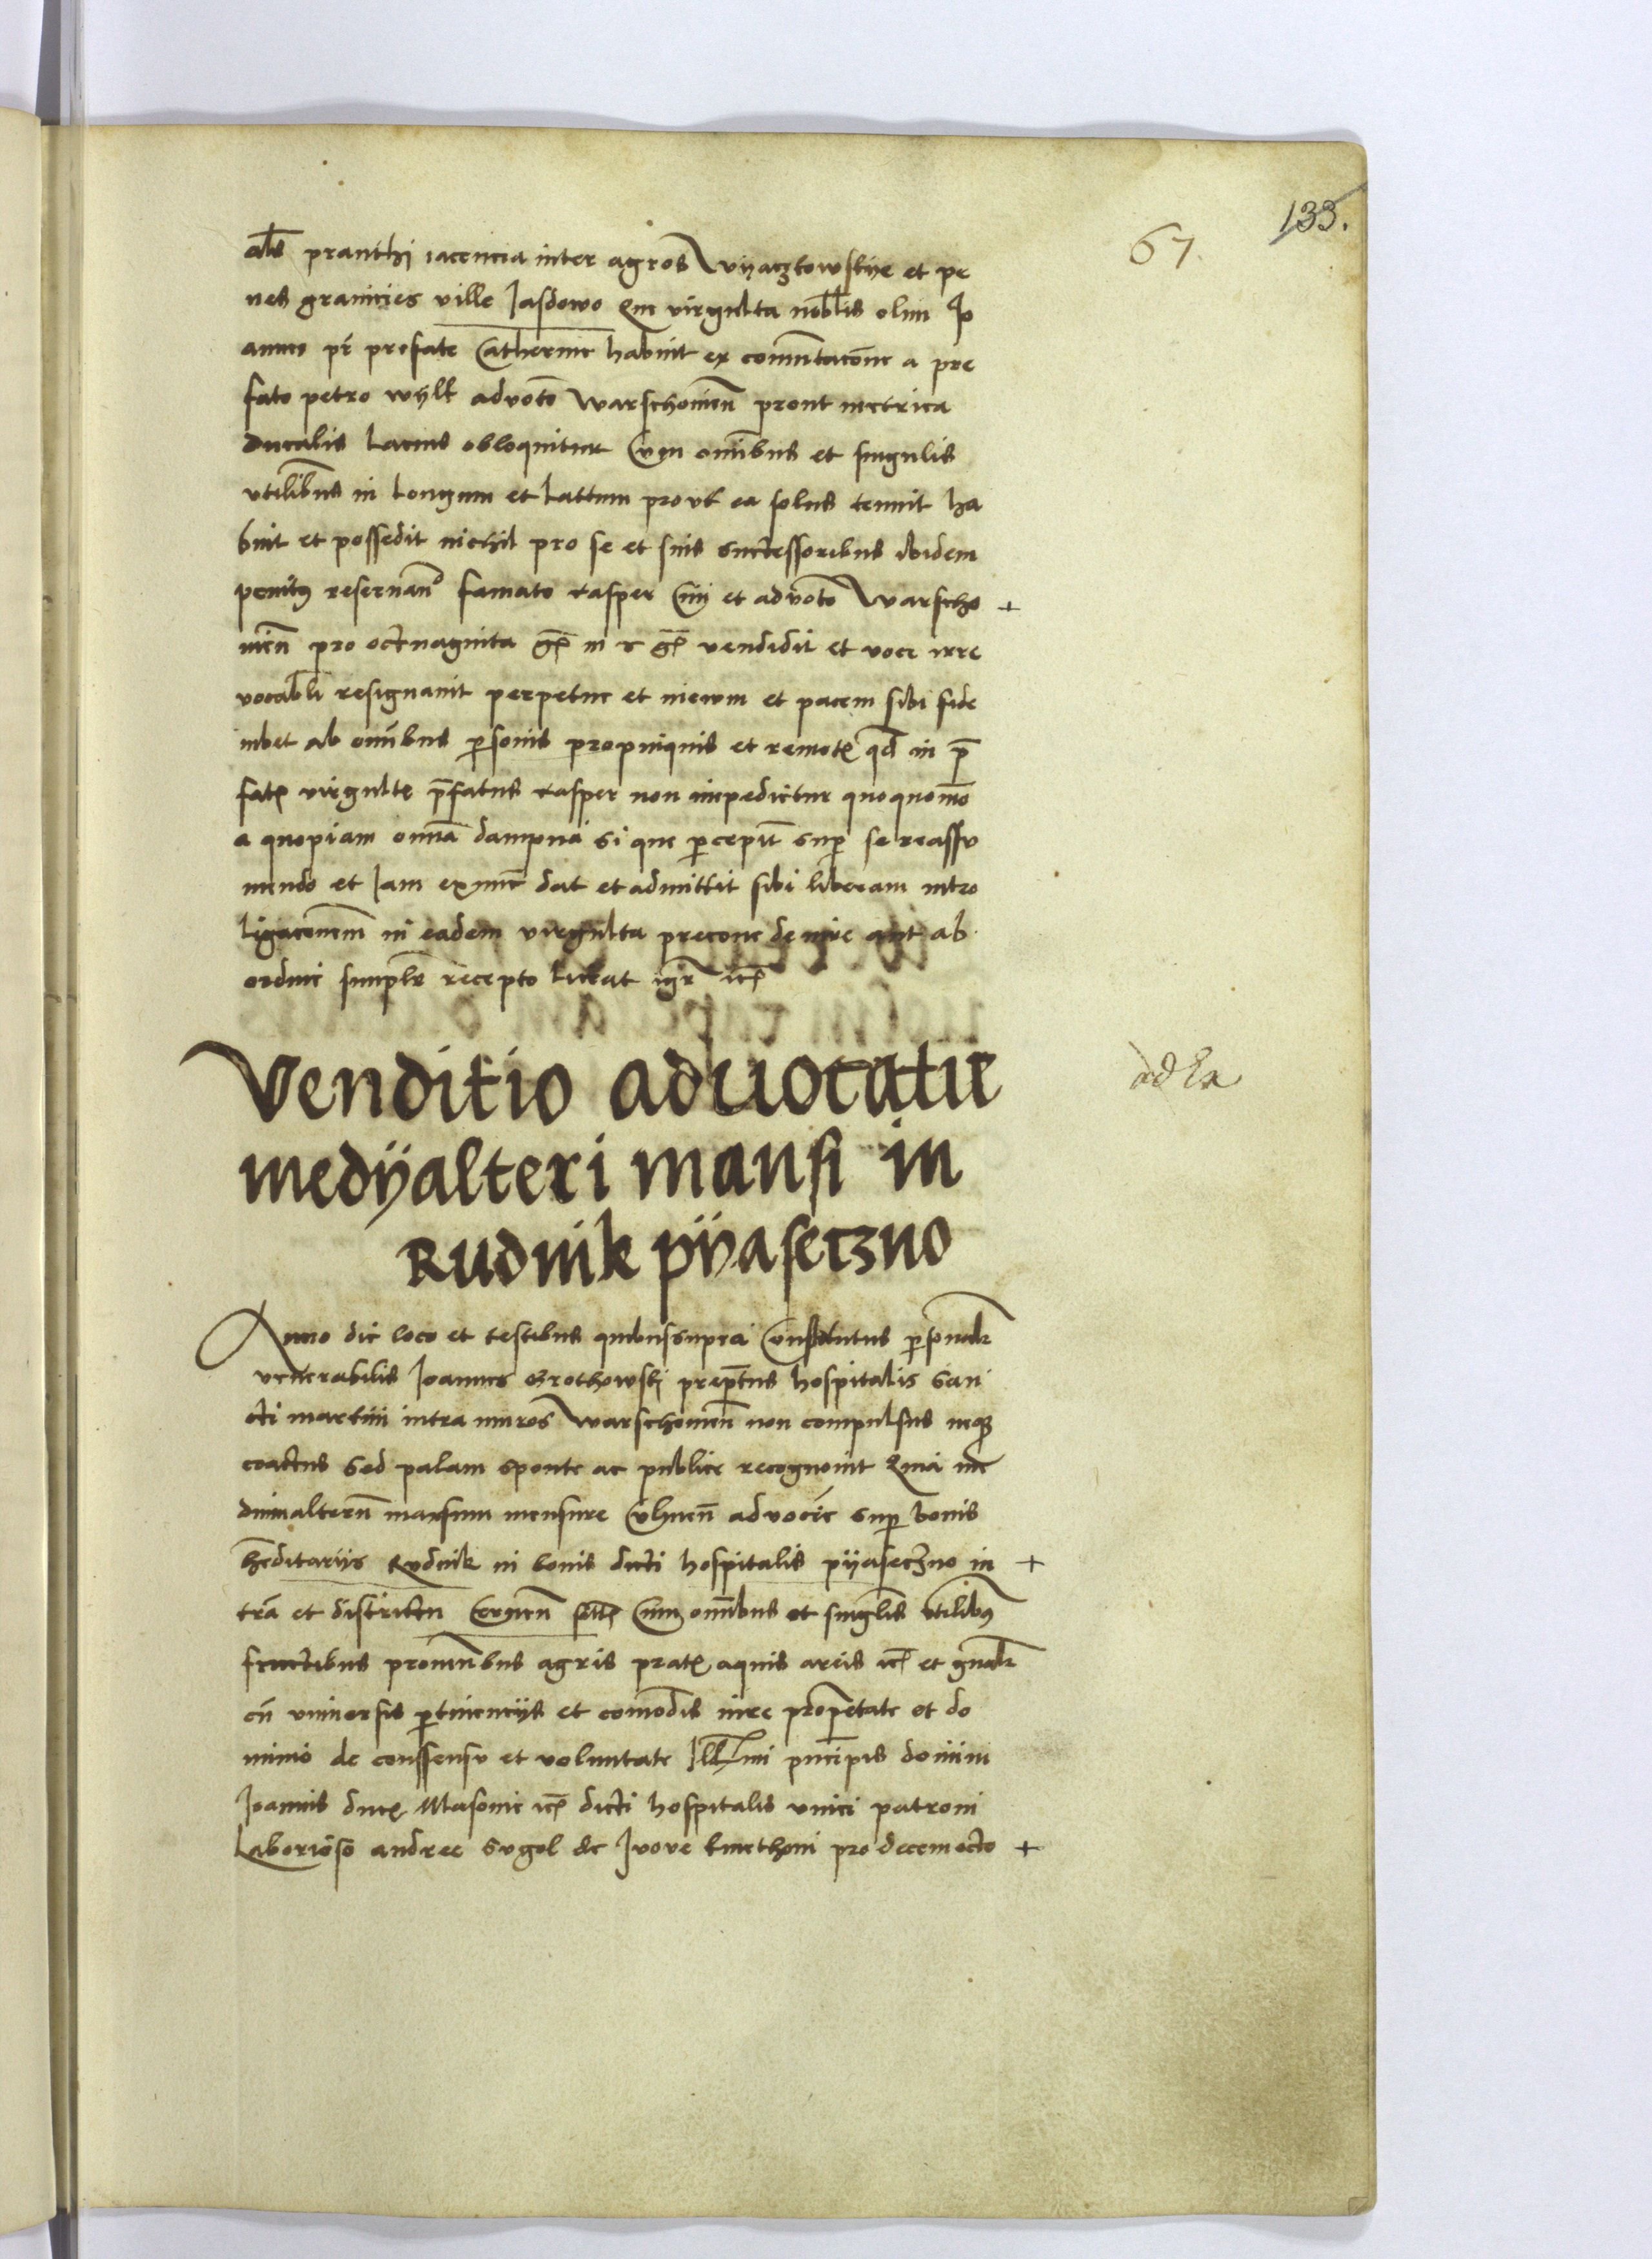 133.
67.
als pranthi iacencia inter agros Wyaczkowskye et pe
nes granicies ville Jasdowo Que virgulta nobilis olim Jo
annes pr prefate Catherine habuit ex comutacone a pre
fato petro wylk advoto Warschovien prout metrica
ducalis Lacius obloquitur Cum omibus et singulis
vtilibus in Longum et Lattum prout ea solus tenuit ha
buit et possedit nichil pro se et suis successoribus ibidem
penitus reservan famato casper et advoto Warscho +
vien pro octuaginta gs in r gs vendidit et voce irre
vocabli resignavit perpetue et in ewm et pacem sibi fide
iubet ab omibus psonis propinquis et remot qd in p
fat virgult pfatus casper non impedietur quoquomo
a quopiam omia dampna si que pcepit sup se reassu
mendo et Jam exnunc dat et admittit sibi liberam intro
ligaconem in eadem virgulta precone de iure aut ab
ordine simplr recepto Luceat igr etc
Venditio advocatie
medyalteri mansi in
Rudnik pyaseczno
ad Ex
Anno die loco et testibus quibus supra Constitutus psonalr
venerabilis Joannes Grothowski preptus hospitalis San
cti martini intra muros Warschovien non compulsus neque
coactus Sed palam sponte ac publice recognovit Quia me
dium alterum mansum mensure Culmen advocie sup bonis
hereditariis Rudnik in bonis dicti hospitalis pyaseczno in +
tra et districtu Cernen sit Cum omibus et singlis vtilibus
fructibus provenbus agris prat aquis areis etc et gnalr
cu universis ptinenciis et comodis iure proprietate et do
minio de conssensu et voluntate Illmi pncipis domini
Joannis duc Masovie etc dicti hospitalis vnici patroni
Laborioso andree Sugol de Jvove kmethoni pro decemocto +